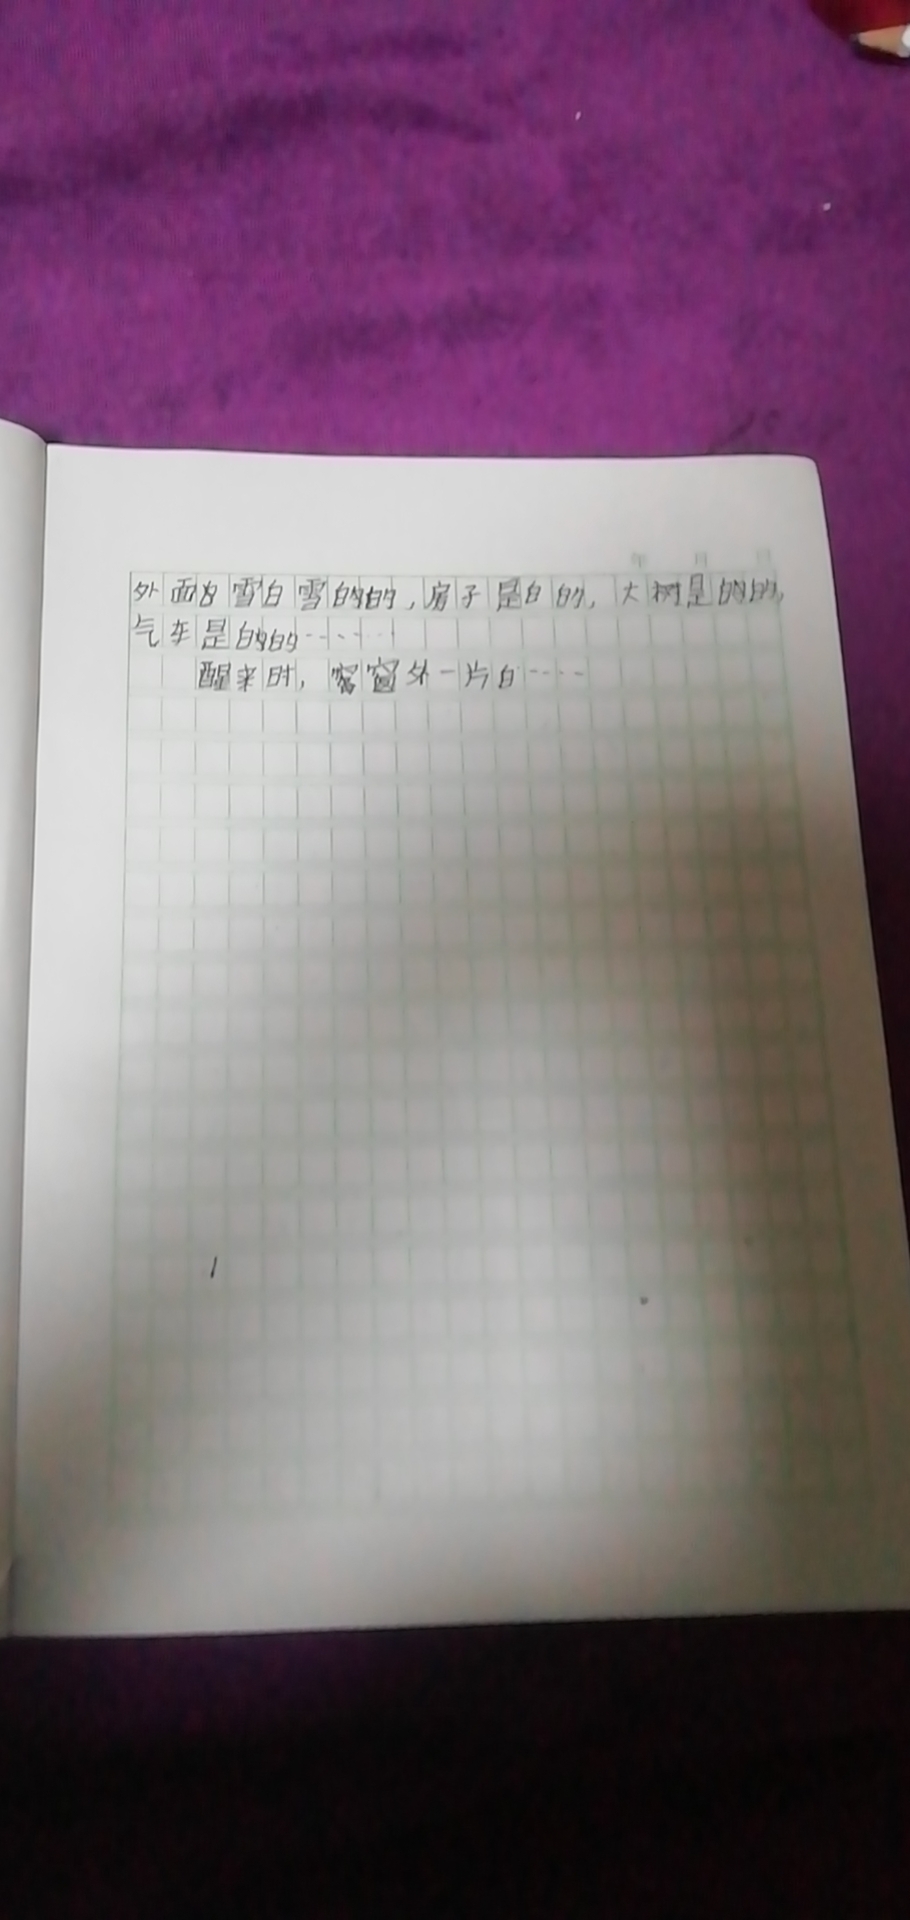 年 月 日
外面白雪白雪的的,房子是白的,大树是的的,
气车是的的……
醒来时,窗外一片白……